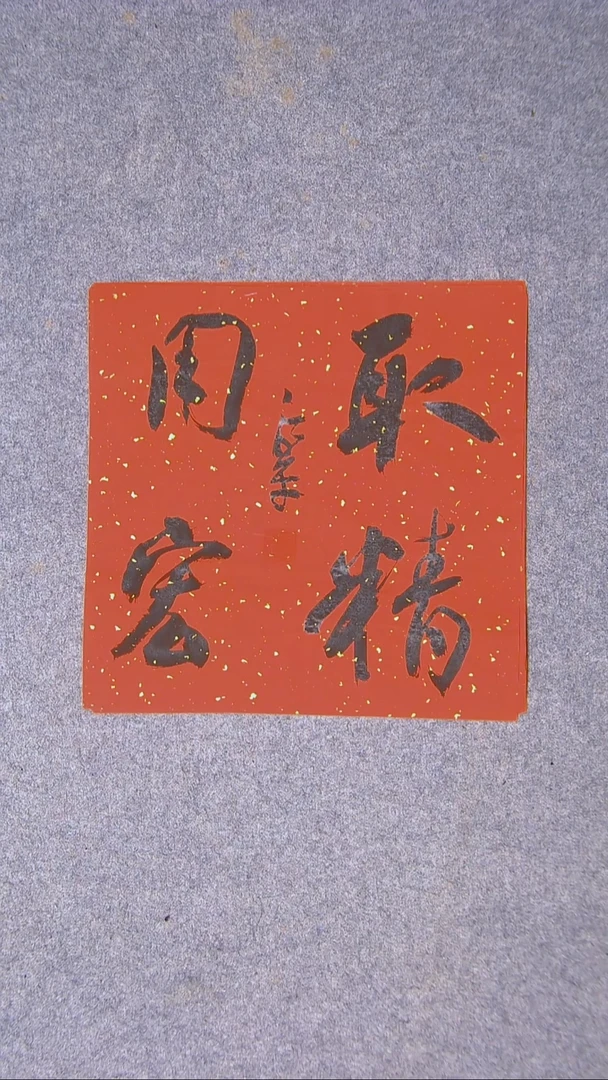 取精
用宏